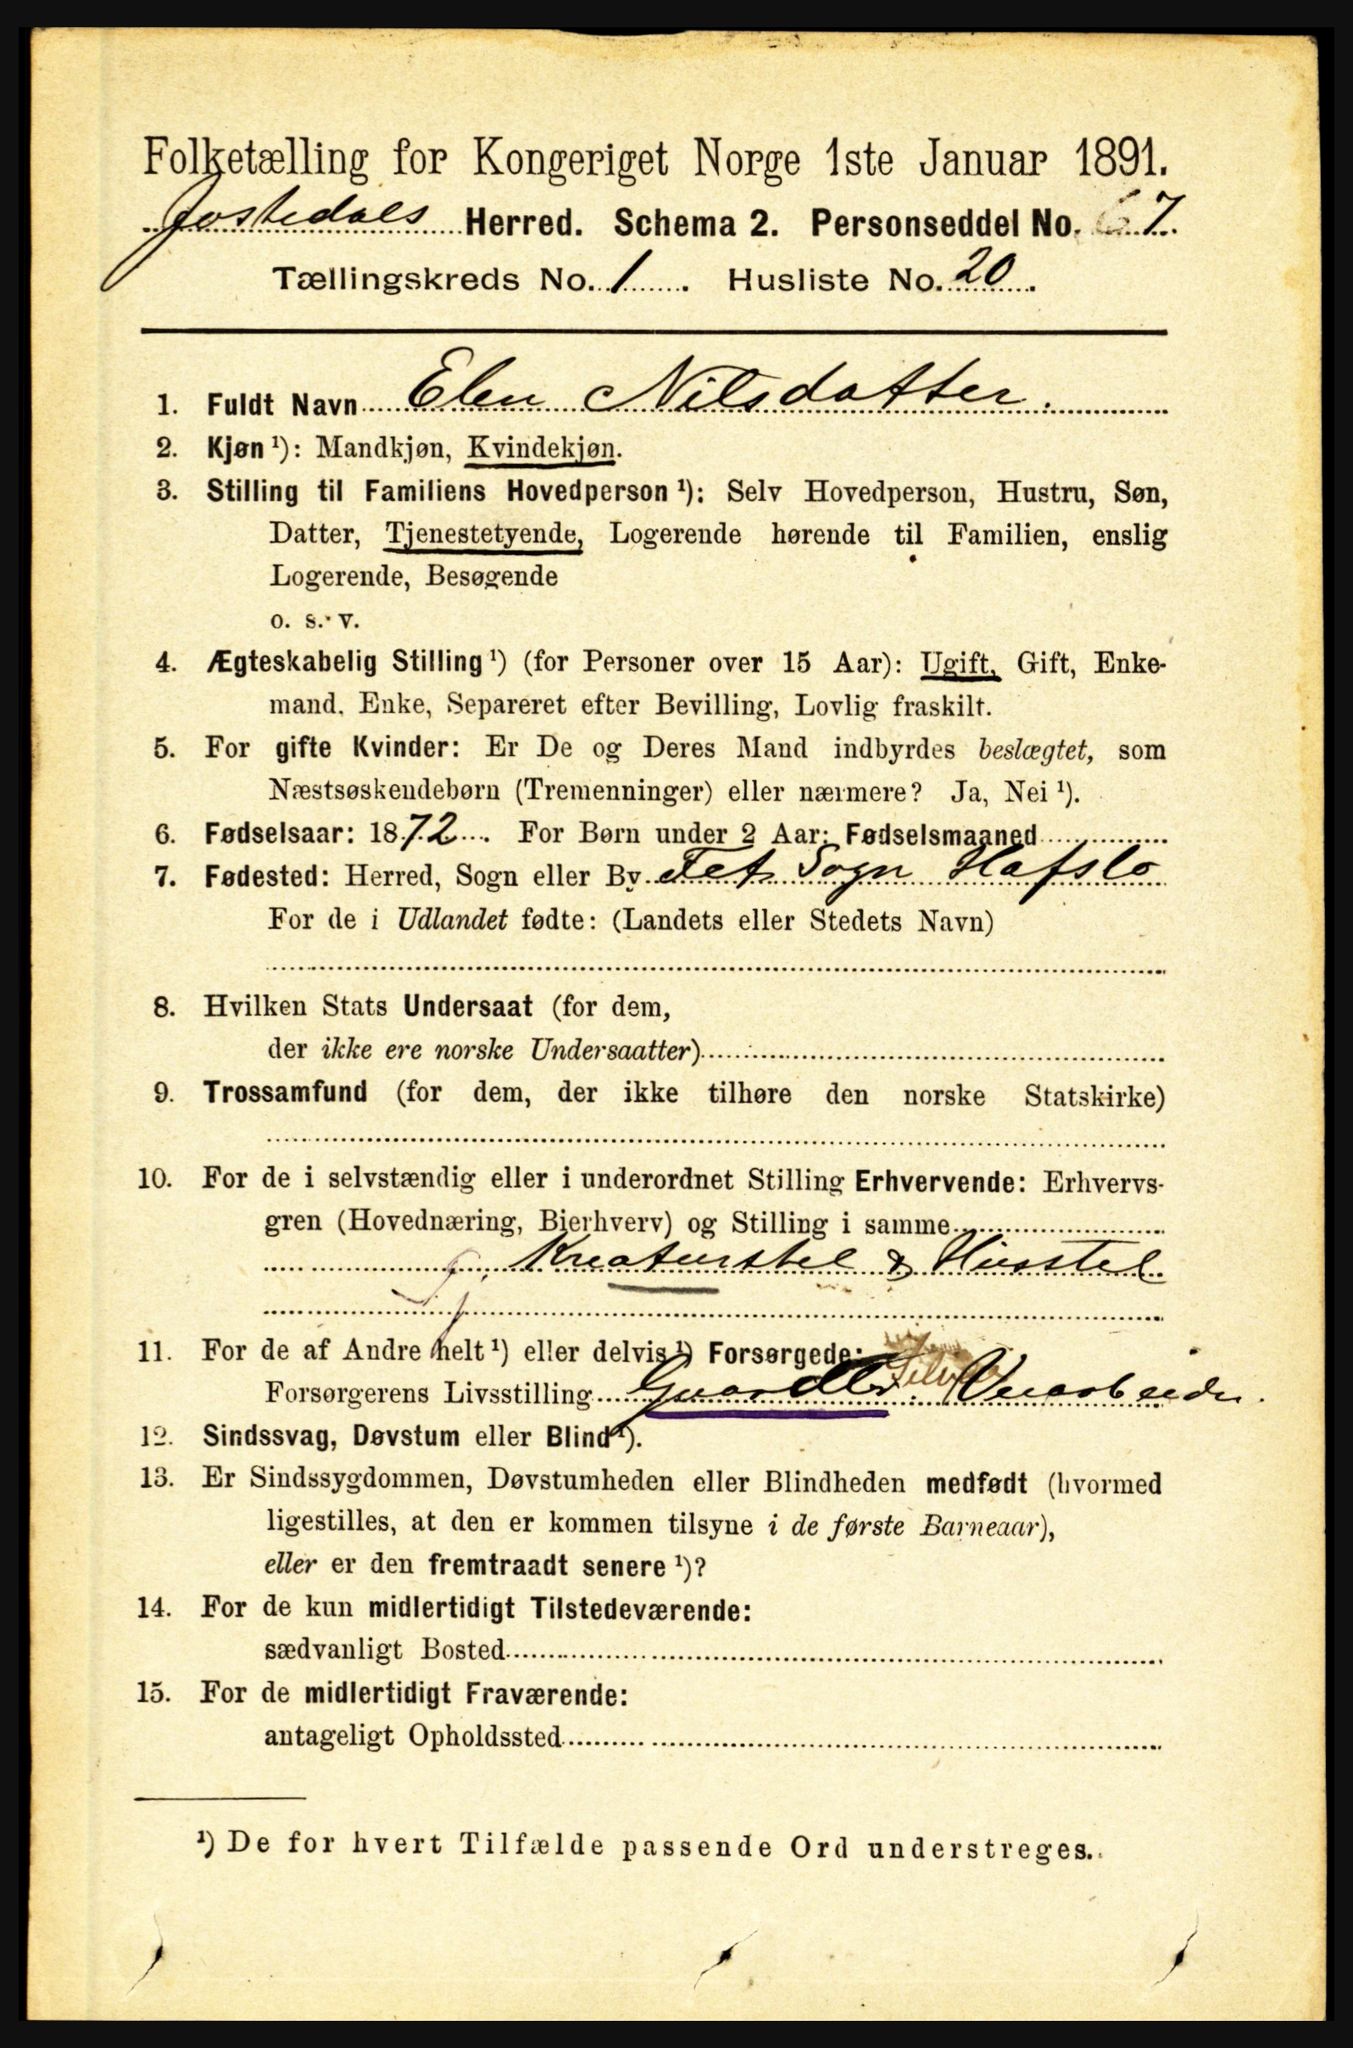 Folketælling for Kongeriget Norge 1ste Januar 1891.
Jostedals Herred. Schema 2. Personseddel No. 67.
Tællingskreds No. 1. Husliste No. 20.
1. Fuldt Navn Elen Nilsdatter.
2. Kjøn ¹): Mandkjøn, Kvindekjøn.
3. Stilling til Familiens Hovedperson ¹): Selv Hovedperson, Hustru, Søn,
Datter, Tjenestetyende, Logerende hørende til Familien, enslig
Logerende, Besøgende
o. s. v.
4. Ægteskabelig Stilling ¹) (for Personer over 15 Aar): Ugift, Gift, Enke-
mand, Enke, Separeret efter Bevilling, Lovlig fraskilt.
5. For gifte Kvinder: Er De og Deres Mand indbyrdes beslægtet, som
Næstsøskendebørn (Tremenninger) eller nærmere? Ja, Nei ¹).
6. Fødselsaar: 1872. For Børn under 2 Aar: Fødselsmaaned
7. Fødested: Herred, Sogn eller By Fet Sogn Hafslo
For de i Udlandet fødte: (Landets eller Stedets Navn)
8. Hvilken Stats Undersaat (for dem,
der ikke ere norske Undersaatter)
9. Trossamfund (for dem, der ikke tilhøre den norske Statskirke)
10. For de i selvstændig eller i underordnet Stilling Erhvervende: Erhvervs-
gren (Hovednæring, Bierhverv) og Stilling i samme
Kreaturstel & Husstel
11. For de af Andre helt ¹) eller delvis ¹) Forsørgede:
Forsørgerens Livsstilling Gaardbr.
12. Sindssvag, Døvstum eller Blind ¹).
13. Er Sindssygdommen, Døvstumheden eller Blindheden medfødt (hvormed
ligestilles, at den er kommen tilsyne i de første Barneaar),
eller er den fremtraadt senere ¹)?
14. For de kun midlertidigt Tilstedeværende:
sædvanligt Bosted
15. For de midlertidigt Fraværende:
antageligt Opholdssted
¹) De for hvert Tilfælde passende Ord understreges.